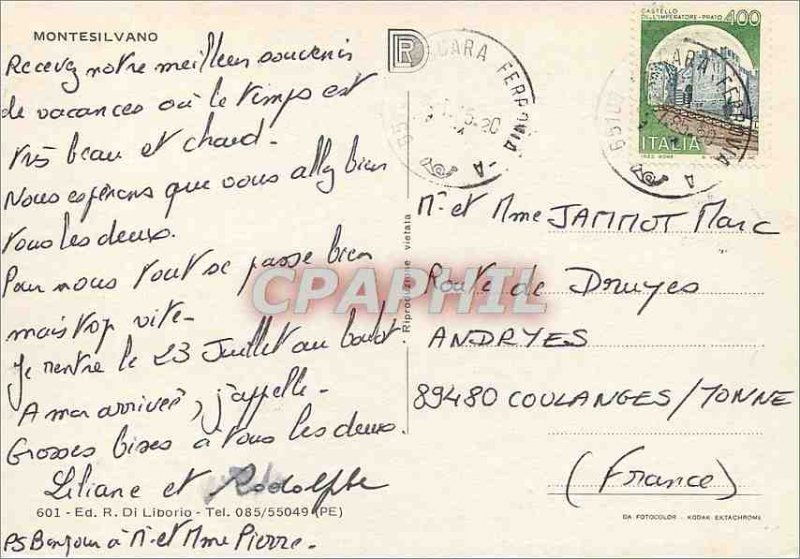 MONTESILVANO
Recevez notre meilleur souvenir
de vacances où le temps est
très beau et chaud.
Nous espérons que vous allez bien
tous les deux.
Pour nous tout se passe bien
mais trop vite-
Je rentre le 23 Juillet au boulot
A mon arrivée, j'appelle-
Grosses bises à tous les deux.
Liliane et Rodolphe
601 - Ed. R. Di Liborio - Tel. 085/55049 (PE)
PS Bonjour à Mr et Mme Pierre-
R
CARA FERROVIA
CASTELLO
DELL'IMPERATORE - PRATO
400
ITALIA
Riproduzione vietata
CPAPHIL
Mr et Mme JAMMOT Marc
Route de Druyes
ANDRYES
89480 COULANGES/YONNE
(France)
DA FOTOCOLOR - KODAK EKTACHROME